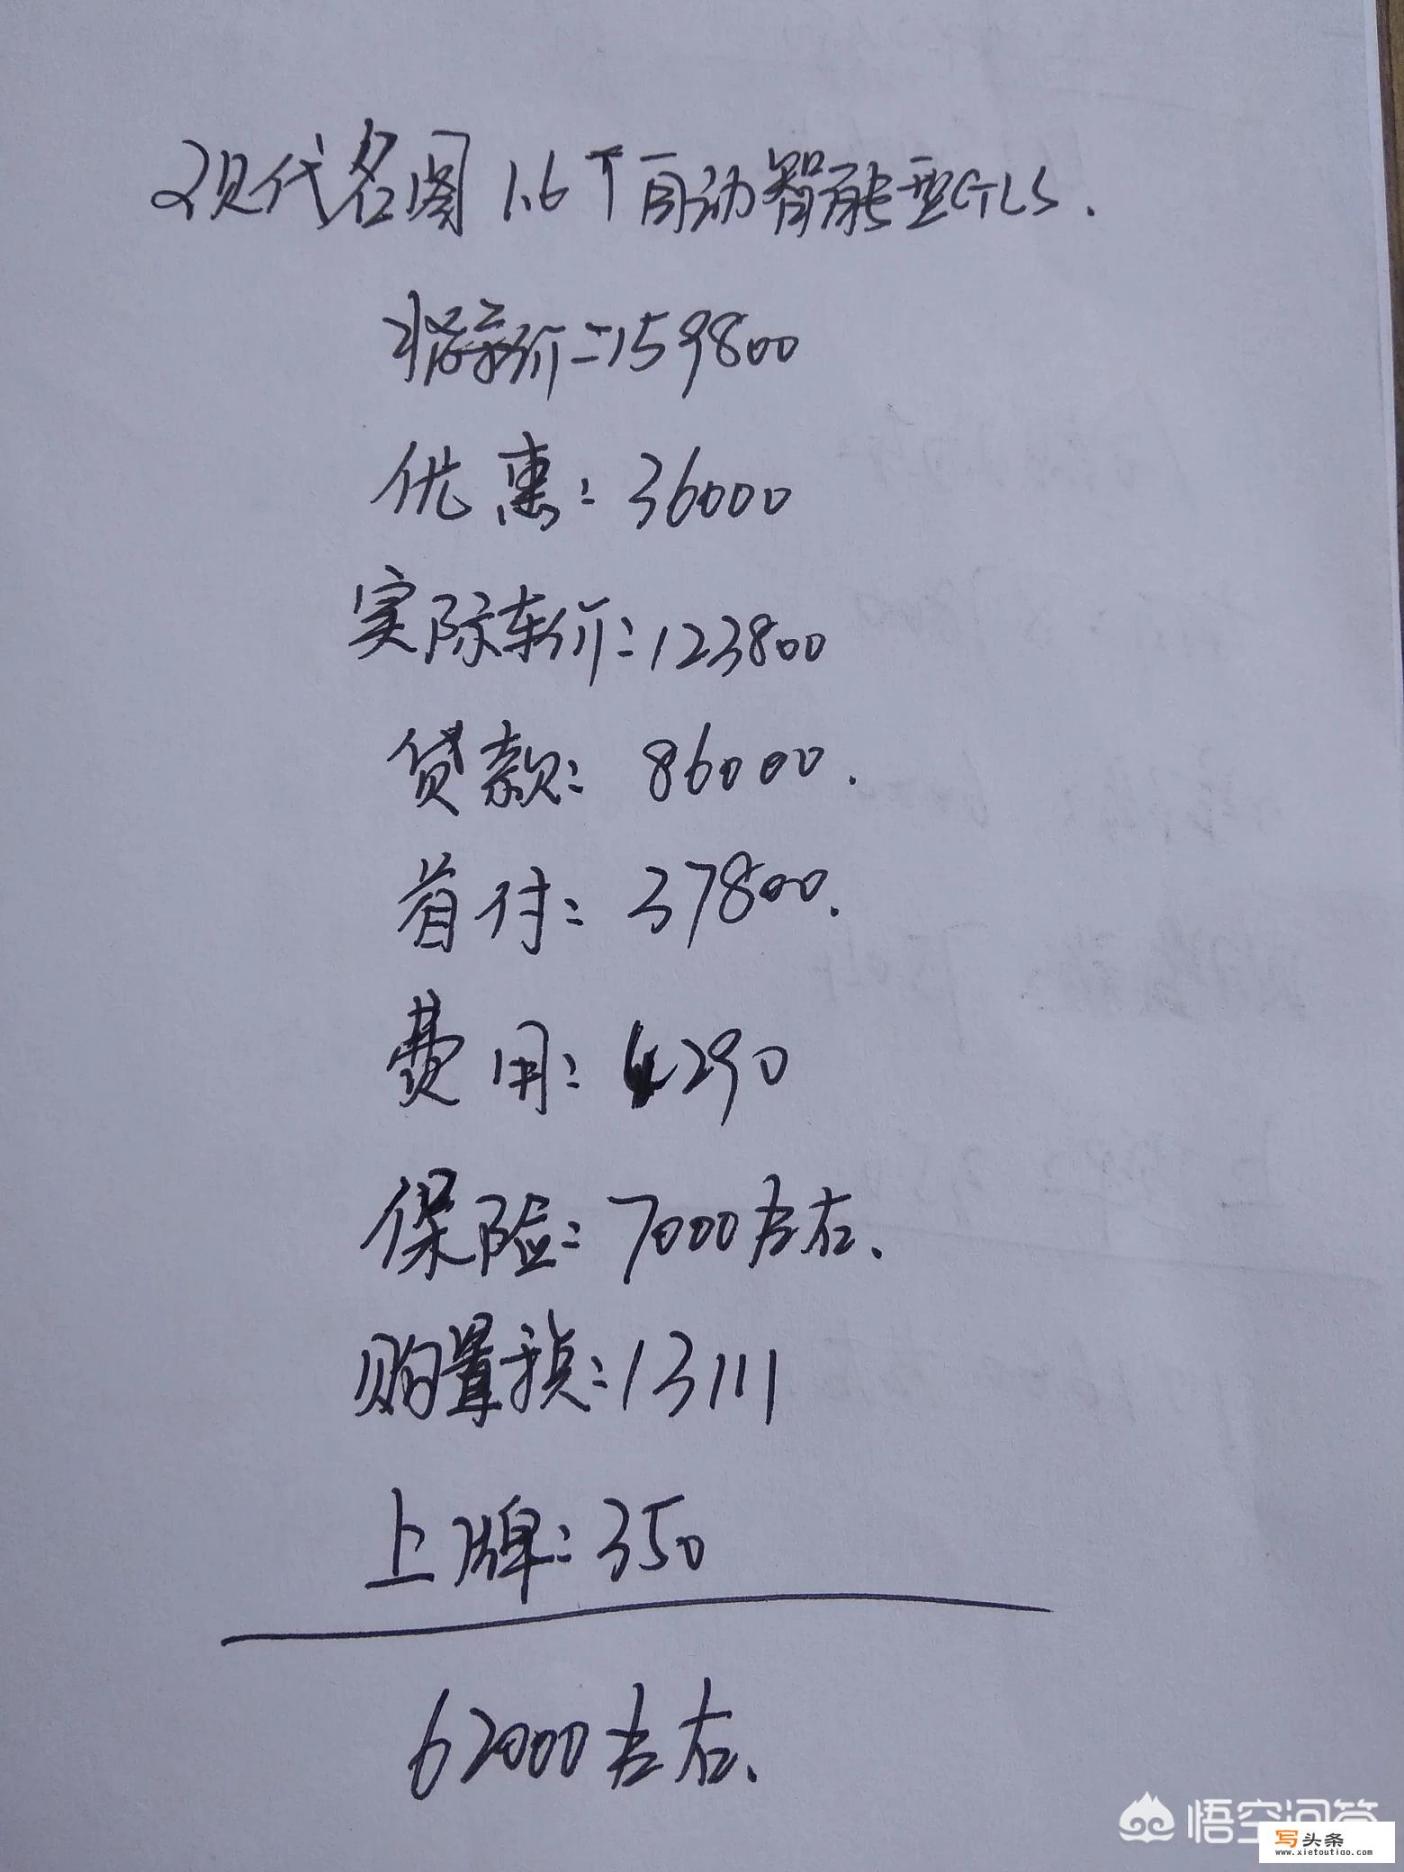 现代名图 1.6T自动智能型GLS.
指导价:159800
优惠:36000
实际车价:123800
贷款:86000.
首付:37800.
费用:4290
保险:7000左右.
购置税:13111
上牌:350
62000左右.
悟空问答
写头条
www.xietoutiao.com